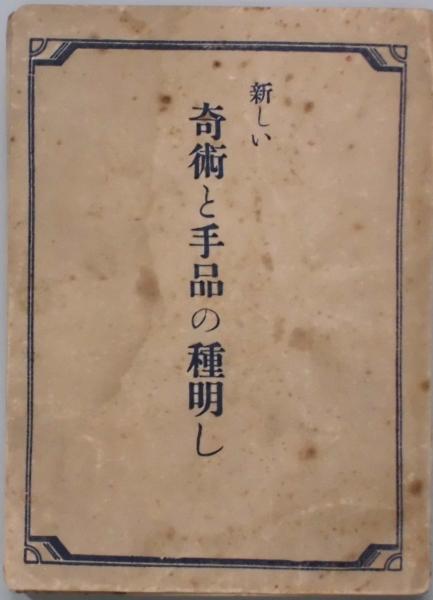 新しい
奇術と手品の種明し